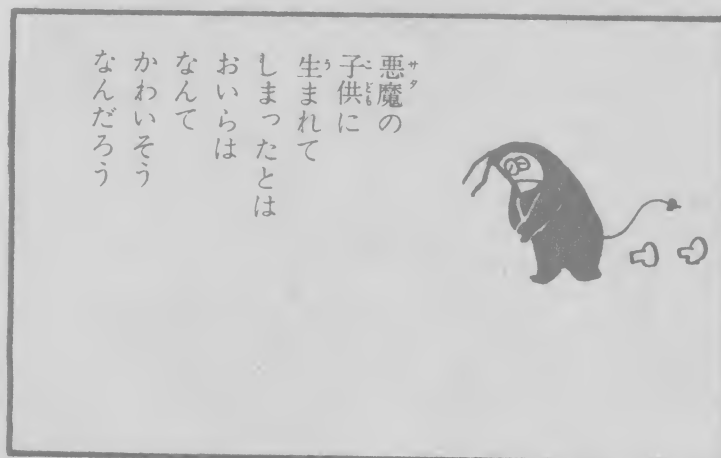 悪魔の
子供に
生まれて
しまったとは
おいらは
なんて
かわいそう
なんだろう